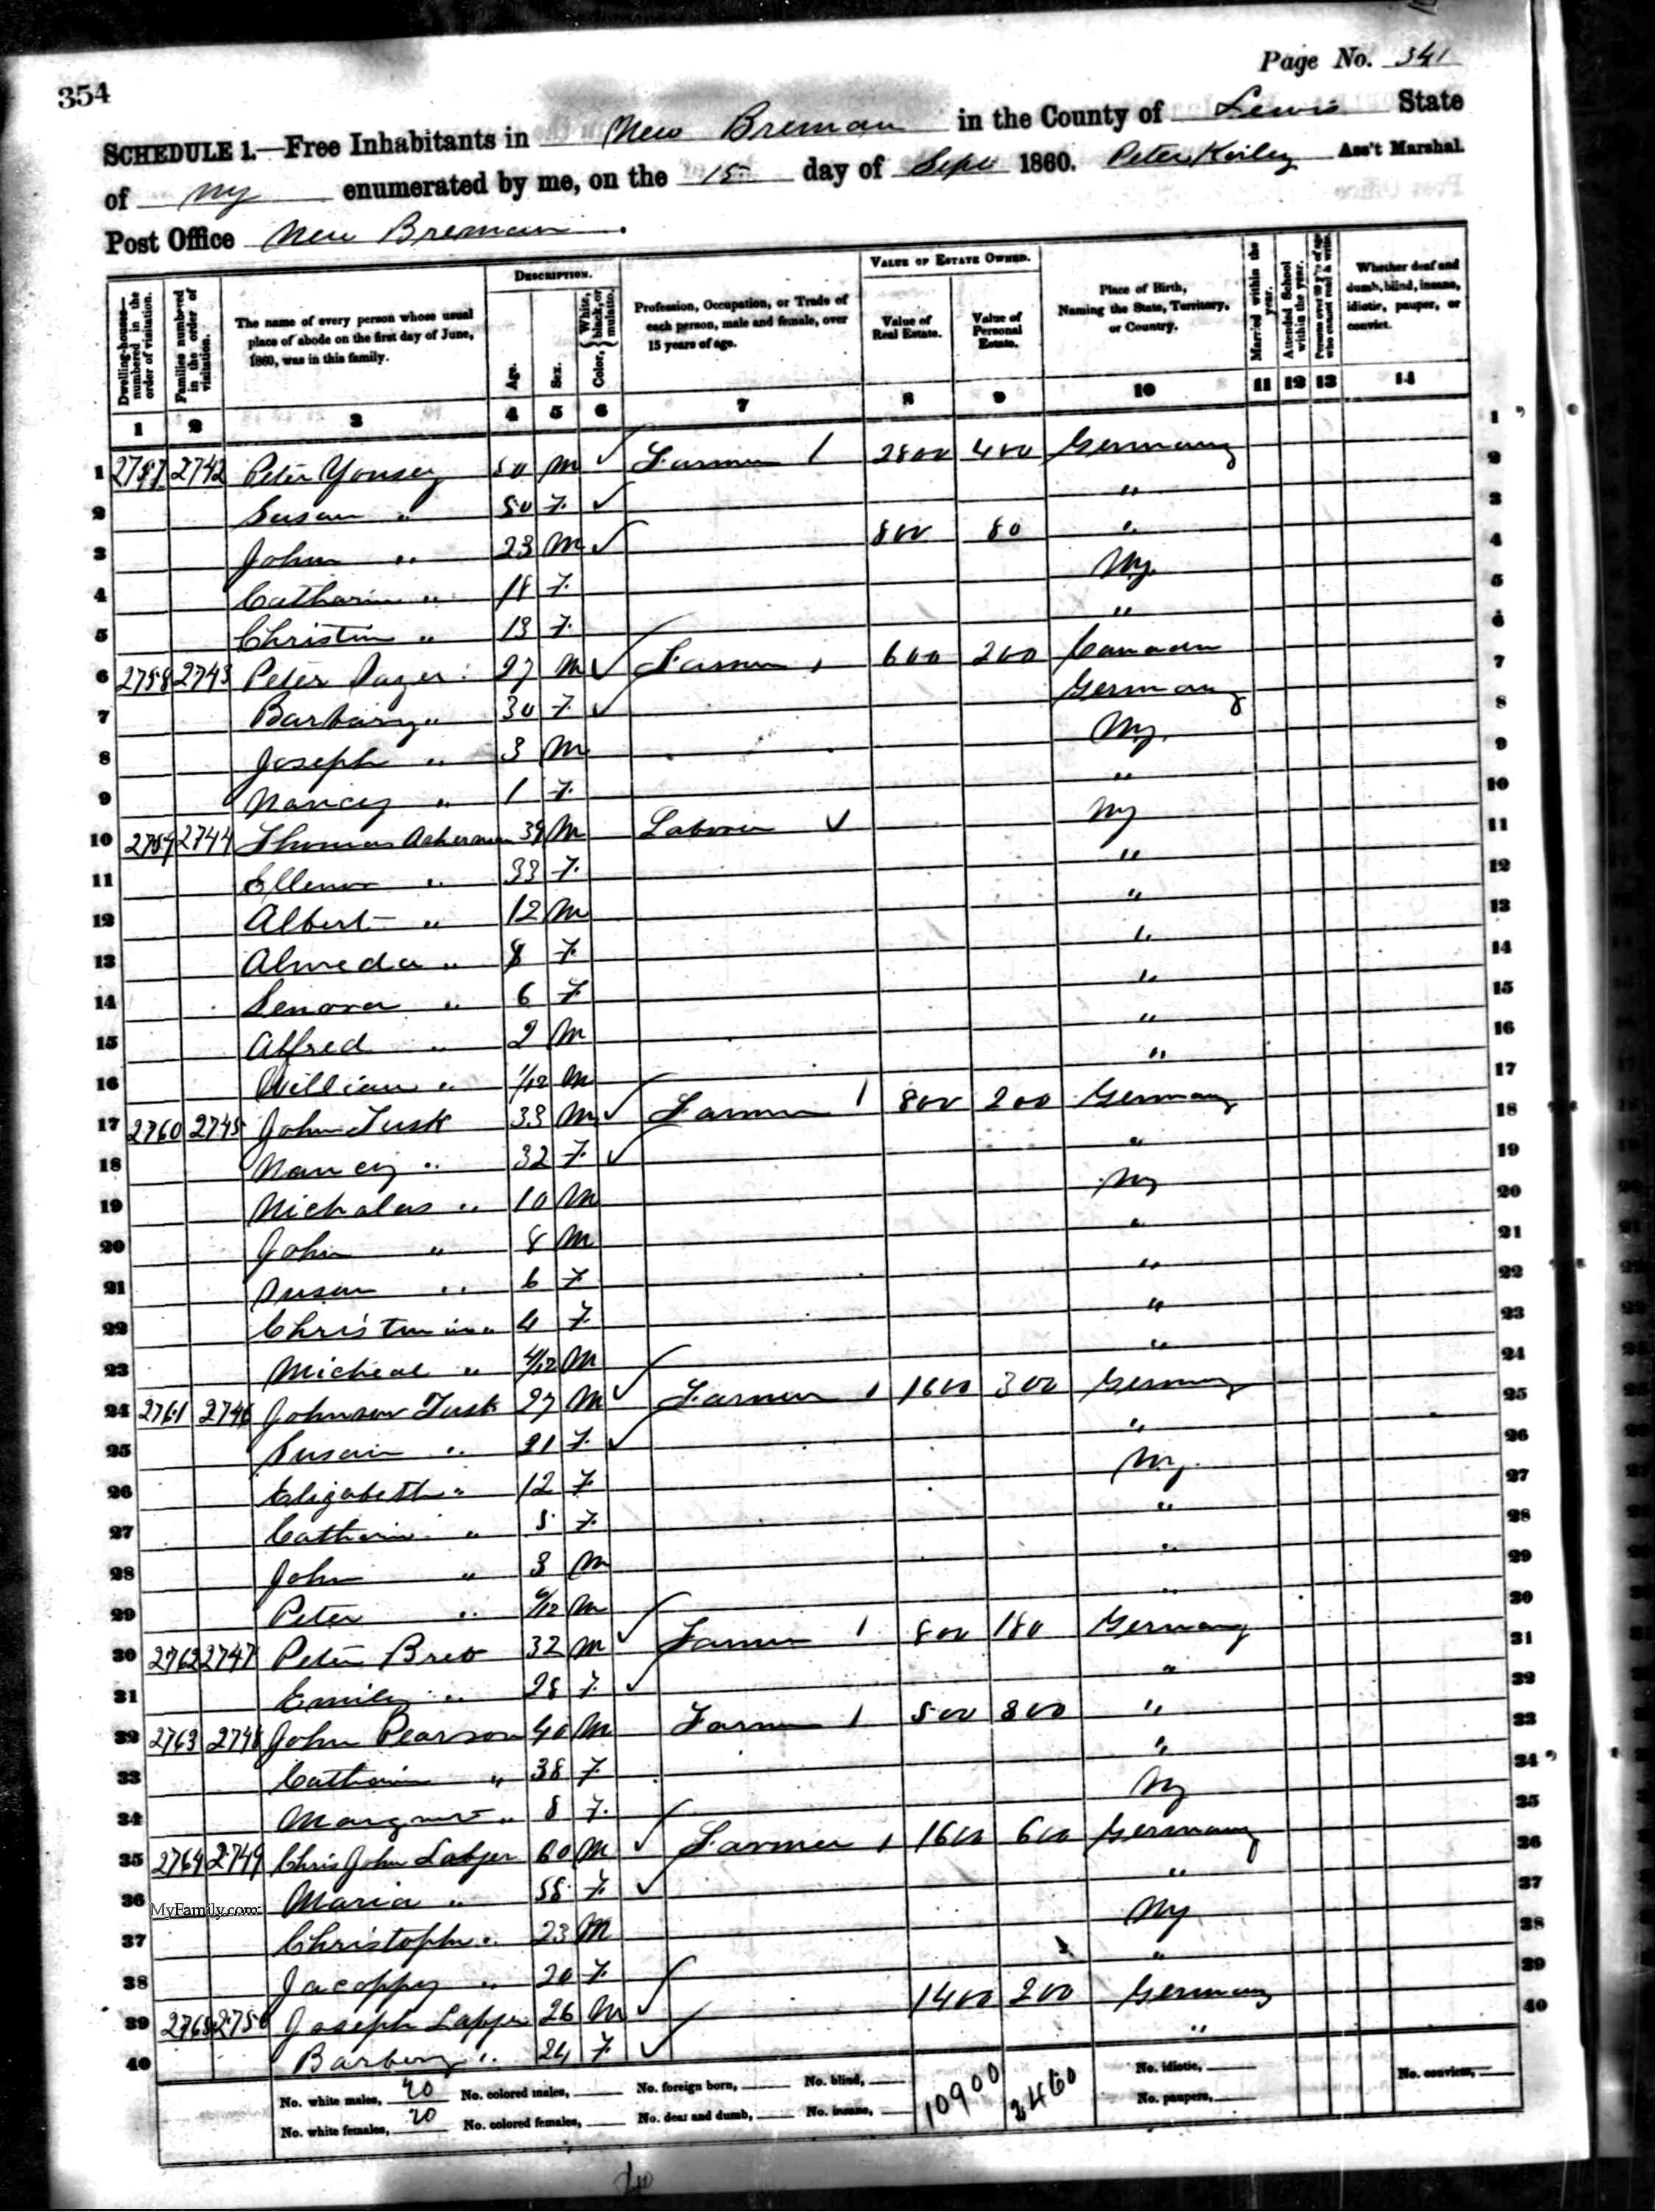 354
Page No. 341
SCHEDULE 1.—Free Inhabitants in New Breman in the County of Lewis State
of NY enumerated by me, on the 15 day of Sept 1860. Peter Kirley Ass't Marshal.
Post Office New Breman.
DESCRIPTION. VALUE OF ESTATE OWNED.
Dwelling-houses—numbered in the order of visitation.
Families numbered in the order of visitation.
The name of every person whose usual place of abode on the first day of June, 1860, was in this family.
Age.
Sex.
Color, White, black, or mulatto.
Profession, Occupation, or Trade of each person, male and female, over 15 years of age.
Value of Real Estate.
Value of Personal Estate.
Place of Birth, Naming the State, Territory, or Country.
Married within the year.
Attended School within the year.
Persons over 20 y'rs of age who cannot read & write.
Whether deaf and dumb, blind, insane, idiotic, pauper, or convict.
1 2 3 4 5 6 7 8 9 10 11 12 13 14
1 2757 2742 Peter Yousey 50 M ✓ Farmer 1 2800 400 Germany 1
2 Susan " 50 F ✓ " 2
3 John " 23 M ✓ 800 80 " 3
4 Catharin " 18 F Ny. 4
5 Christin " 13 F " 5
6 2758 2743 Peter 27 M ✓ Farmer 1 600 200 Canada 6
7 Barbary " 30 F ✓ Germany 7
8 Joseph " 3 M Ny. 8
9 Nancy " 1 F " 9
10 2759 2744 Thomas Ackerman 39 M Laborer ✓ Ny 10
11 Ellenor " 33 F " 11
12 Albert " 12 M " 12
13 Almeda " 8 F " 13
14 Lenora " 6 F " 14
15 Alfred " 2 M " 15
16 William " 1/12 M " 16
17 2760 2745 John Tusk 33 M ✓ Farmer 1 800 200 Germany 17
18 Nancy " 32 F ✓ " 18
19 Nicholas " 10 M Ny 19
20 John " 8 M " 20
21 Susan " 6 F " 21
22 " 4 F " 22
23 Micheal " 4/12 M " 23
24 2761 2746 Johnson Tusk 27 M ✓ Farmer 1 1600 300 Germany 24
25 Susan " 21 F ✓ " 25
26 Elizabeth " 12 F Ny. 26
27 Catharin " 5 F " 27
28 John " 3 M " 28
29 Peter " 6/12 M " 29
30 2762 2747 Peter 32 M ✓ Farmer 1 800 180 Germany 30
31 Emily " 28 F ✓ " 31
32 2763 2748 John Pearson 40 M Farmer 1 500 300 " 32
33 Catharin " 38 F " 33
34 Margaret " 8 F Ny 34
35 2764 2749 Chris John 60 M ✓ Farmer 1 1600 600 Germany 35
36 Maria " 58 F ✓ " 36
37 Christopher " 23 M Ny 37
38 Jacoppy " 20 F " 38
39 2765 2750 Joseph 26 M ✓ 1400 200 Germany 39
40 Barbery " 24 F ✓ " 40
MyFamily.com
No. white males, 20 No. colored males, No. foreign born, No. blind, 10900 2460 No. idiotic, No. convicts,
No. white females, 20 No. colored females, No. deaf and dumb, No. insane, No. paupers,